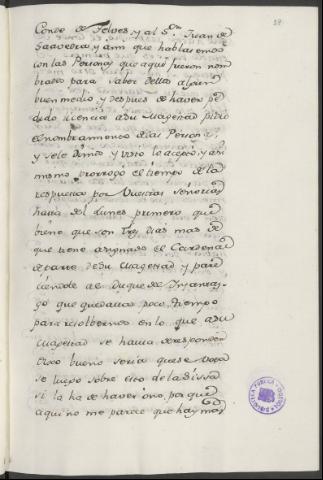 28
Conde de Teves, y al S.or Juan de
Saavedra, y assi que hablasemos
con las Personas que aqui fueron nom
bradas para saber della algun
buen medio, y despues de haver pe
dido licencia a Su Magestad pidio
el nombramiento de las Personas,
y sele dimos, y visto lo acepto, y assi
mismo prorrogo el tiempo de la
respuesta por Vuestras Señorias
hasta del Lunes primero que
biene que son tres dias mas de
que tiene asignado el Cardenal
de parte de Su Magestad, y pare
ciendole al Duque del Infantaz
go que quedava poco tiempo
para resolbernos en lo que a Su
Magestad se havia de responder
Dixo bueno seria que se vea
se luego sobre esto de la Sissa
si la ha de haver ô no, por que
aqui no me parece que hay mas
BIBLIOTECA PUBLICA TOLEDO